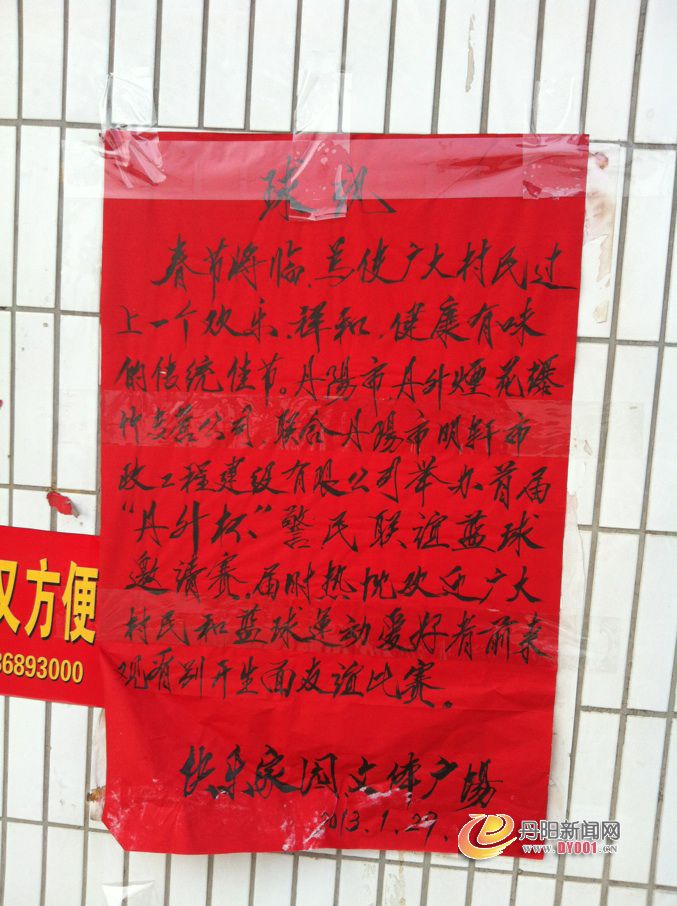 球讯
春节将临,为使广大村民过
上一个欢乐、祥和,健康有味
的传统佳节。丹陽市丹外煙花爆
竹专营公司,联合丹陽市明轩市
政工程建设有限公司举办首届
“丹外杯”警民联谊蓝球
邀请赛,届时热忱欢迎广大
村民和蓝球运动爱好者前来
观看别开生面友谊比赛。
快乐家园文体广場
2013.1.29.
又方便
86893000
丹阳新闻网
www.DY001.cn